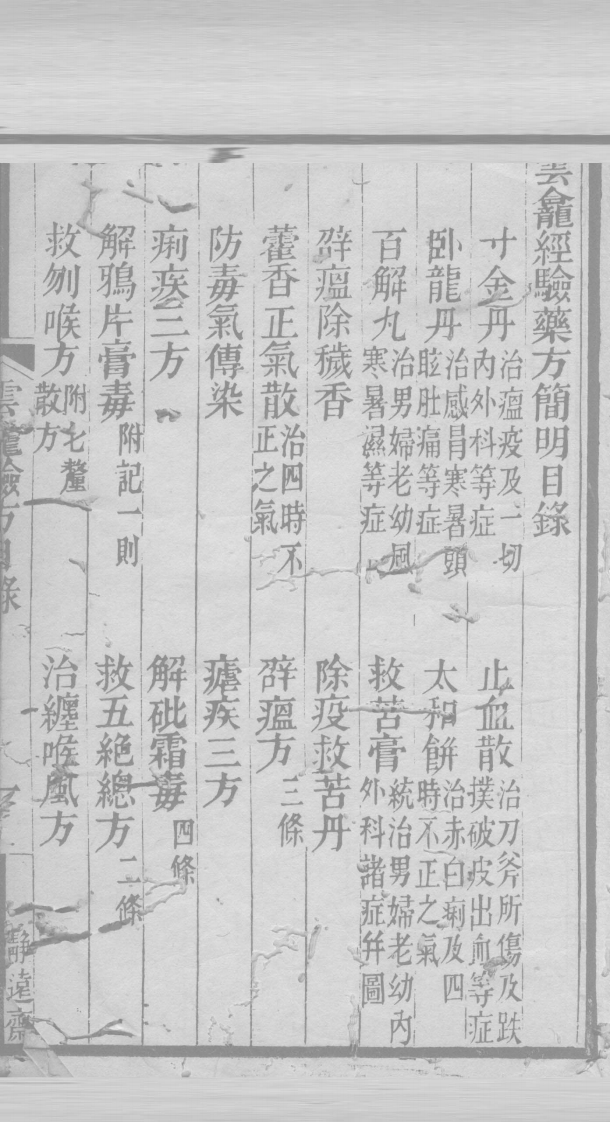 雲龕經驗藥方簡明目錄
寸金丹 治瘟疫及一切內外科等症
止血散 治刀斧所傷及跌撲破皮出血等症
臥龍丹 治感冒寒暑頭眩肚痛等症
太和餅 治赤白痢及四時不正之氣
百解丸 治男婦老幼風寒暑濕等症
救苦膏 統治男婦老幼內外科諸症并圖
辟瘟除穢香
除疫救苦丹
藿香正氣散 治四時不正之氣
辟瘟方 三條
防毒氣傳染
瘧疾三方
痢疾三方
解砒霜毒 四條
解鴉片膏毒 附記一則
救五絕總方 二條
救刎喉方 附七釐散方
治纏喉風方
雲龕驗方目錄
靜遠齋